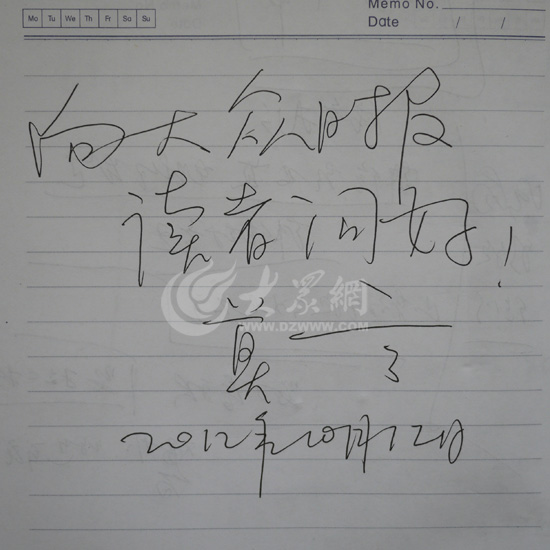 Memo No.
Mo Tu We Th Fr Sa Su
Date / /
向大众日报
读者问好!
大眾網
WWW.DZWWW.COM
莫言
2012年10月12日